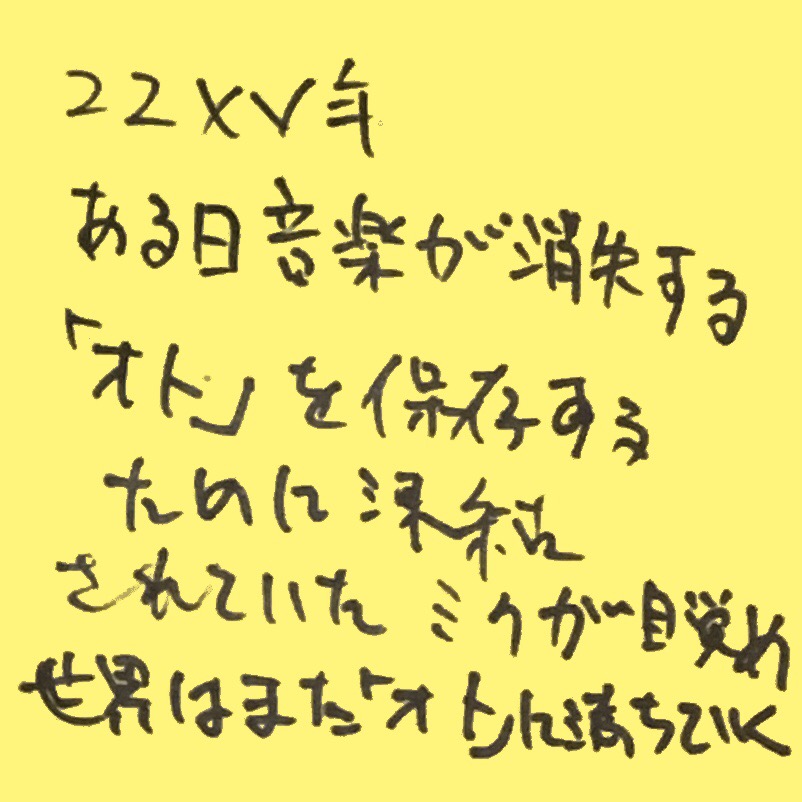 22XV年
ある日音楽が消失する
「オト」を保存する
ために凍結
されていた ミクが目覚め
世界はまた「オト」に満ちていく